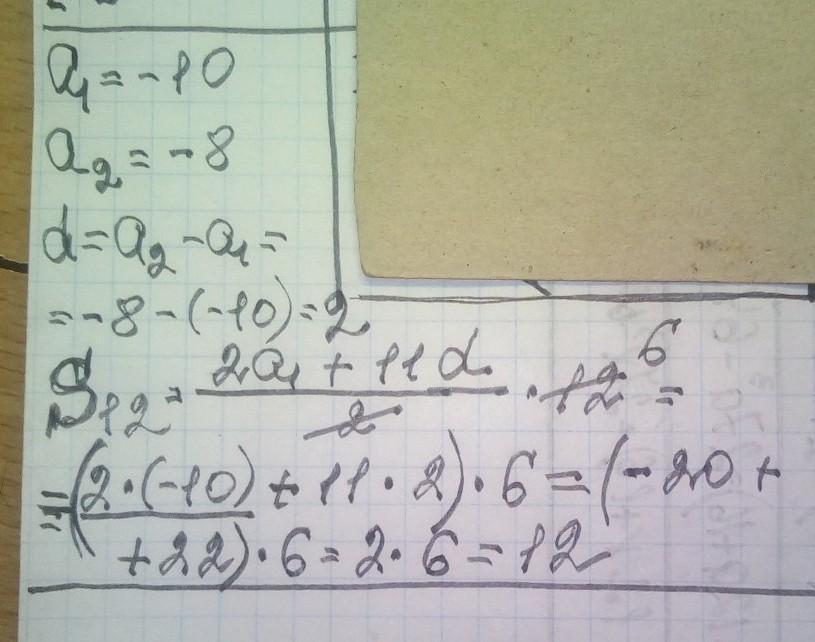 a₁ = -10
a₂ = -8
d = a₂ - a₁ =
= -8 - (-10) = 2
S₁₂ = (2a₁ + 11d)/2 · 12 6 =
= (2 · (-10) + 11 · 2) · 6 = (-20 +
+ 22) · 6 = 2 · 6 = 12